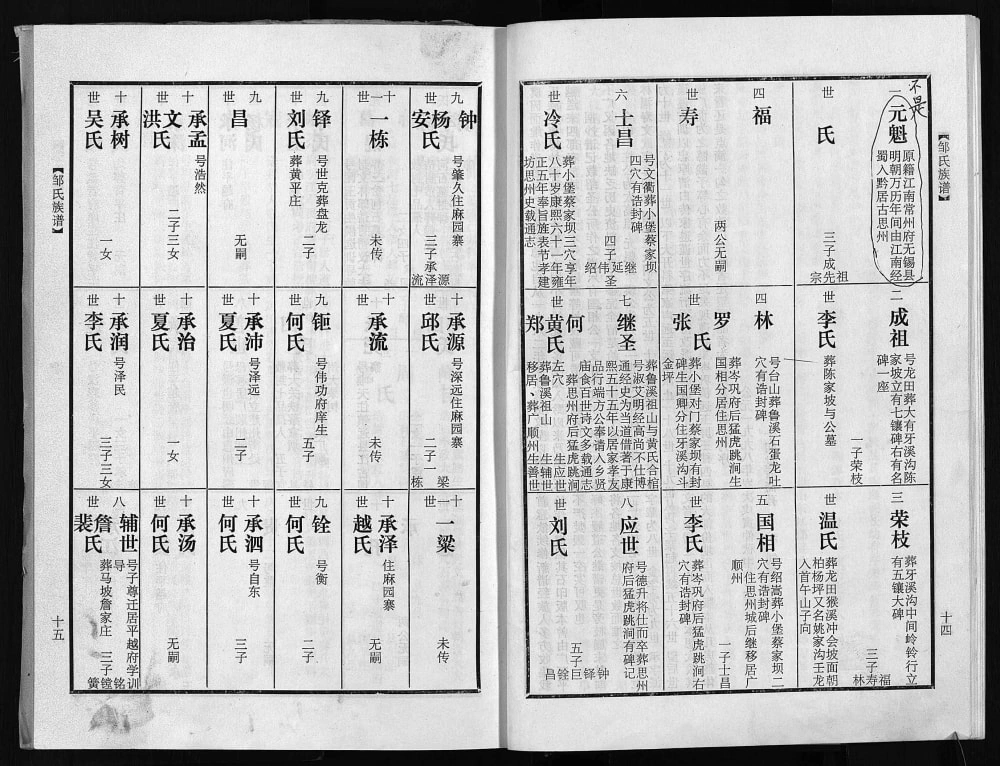 【邹氏族谱】
十四
不是
一 元魁
原籍江南常州府无锡县
明朝万历年间由江南经
蜀入黔居古思州
世 氏
三子成
祖
先
宗
二 成祖
号龙田葬大有牙溪沟陈
家坡立有七镶碑右有名
碑一座
一子荣枝
世 李氏
葬陈家坡与公墓
三 荣枝
葬牙溪沟中间岭铃行立
有五镶大碑
三子
福
寿
林
世 温氏
葬龙田猴溪冲会坡面朝
柏杨坪又名姚家沟王龙
入首午山子向
四 福
两公无嗣
世 寿
四 林
号台山葬鲁溪石蛋龙吐
穴有诰封碑
世 罗氏
葬岑巩府后猛虎跳涧生
国相分居住思州
张
葬小堡对门蔡家坝有封
碑生国卿分住牙溪沟斗
金坪
五 国相
号绍嵩葬小堡蔡家坝二
穴有诰封碑
住思州城后继移居广
顺州
一子士昌
世 李氏
葬岑巩府后猛虎跳涧右
穴有诰封碑
六 士昌
号文衢葬小堡蔡家坝
四穴有诰封碑
四子
继圣
延
伟
绍
世 冷氏
葬小堡蔡家坝三穴享年
八十岁康熙六十一年雍
正五年奉旨旌表节孝建
坊思州史载通志
七 继圣
葬鲁溪祖山与黄氏合棺
号淑艾明经高尚不仕博
通经史为当道借著于康
熙五十五年以居家孝友
品行端方公奉请入乡贤
庙食百世诗文多载通志
世 何
葬思州府后猛虎跳涧
左穴
生应世
黄氏
葬鲁溪祖山
生辅世
郑
移居、葬广顺州生善世
八 应世
号德升将仕而卒葬思州
府后猛虎跳涧有碑记
五子
钟
铎
巨
铨
昌
世 刘氏
九 钟
号肇久住麻园寨
三子承
源
泽
流
世 杨氏
安
十 承源
号深远住麻园寨
二子一
梁
栋
世 邱氏
十一 一梁
未传
世
十一 一栋
未传
世
十 承流
未传
世
十 承泽
住麻园寨
无嗣
世 越氏
九 铎
号世克葬盘龙
二子
世 刘氏
葬黄平庄
九 钜
号伟功府庠生
五子
世 何氏
九 铨
号衡
二子
世 何氏
九 昌
无嗣
世
十 承沛
号泽远
二子
世 夏氏
十 承泗
号自东
三子
世 何氏
十 承孟
号浩然
二子三女
世 文氏
洪
十 承治
一女
世 夏氏
十 承汤
无嗣
世 何氏
十 承树
一女
世 吴氏
十 承润
号泽民
三子三女
世 李氏
八 辅世
号子尊迁居平越府学训
导
三子
铭
镗
簧
世 詹氏
葬马坡詹家庄
裴
【邹氏族谱】
十五